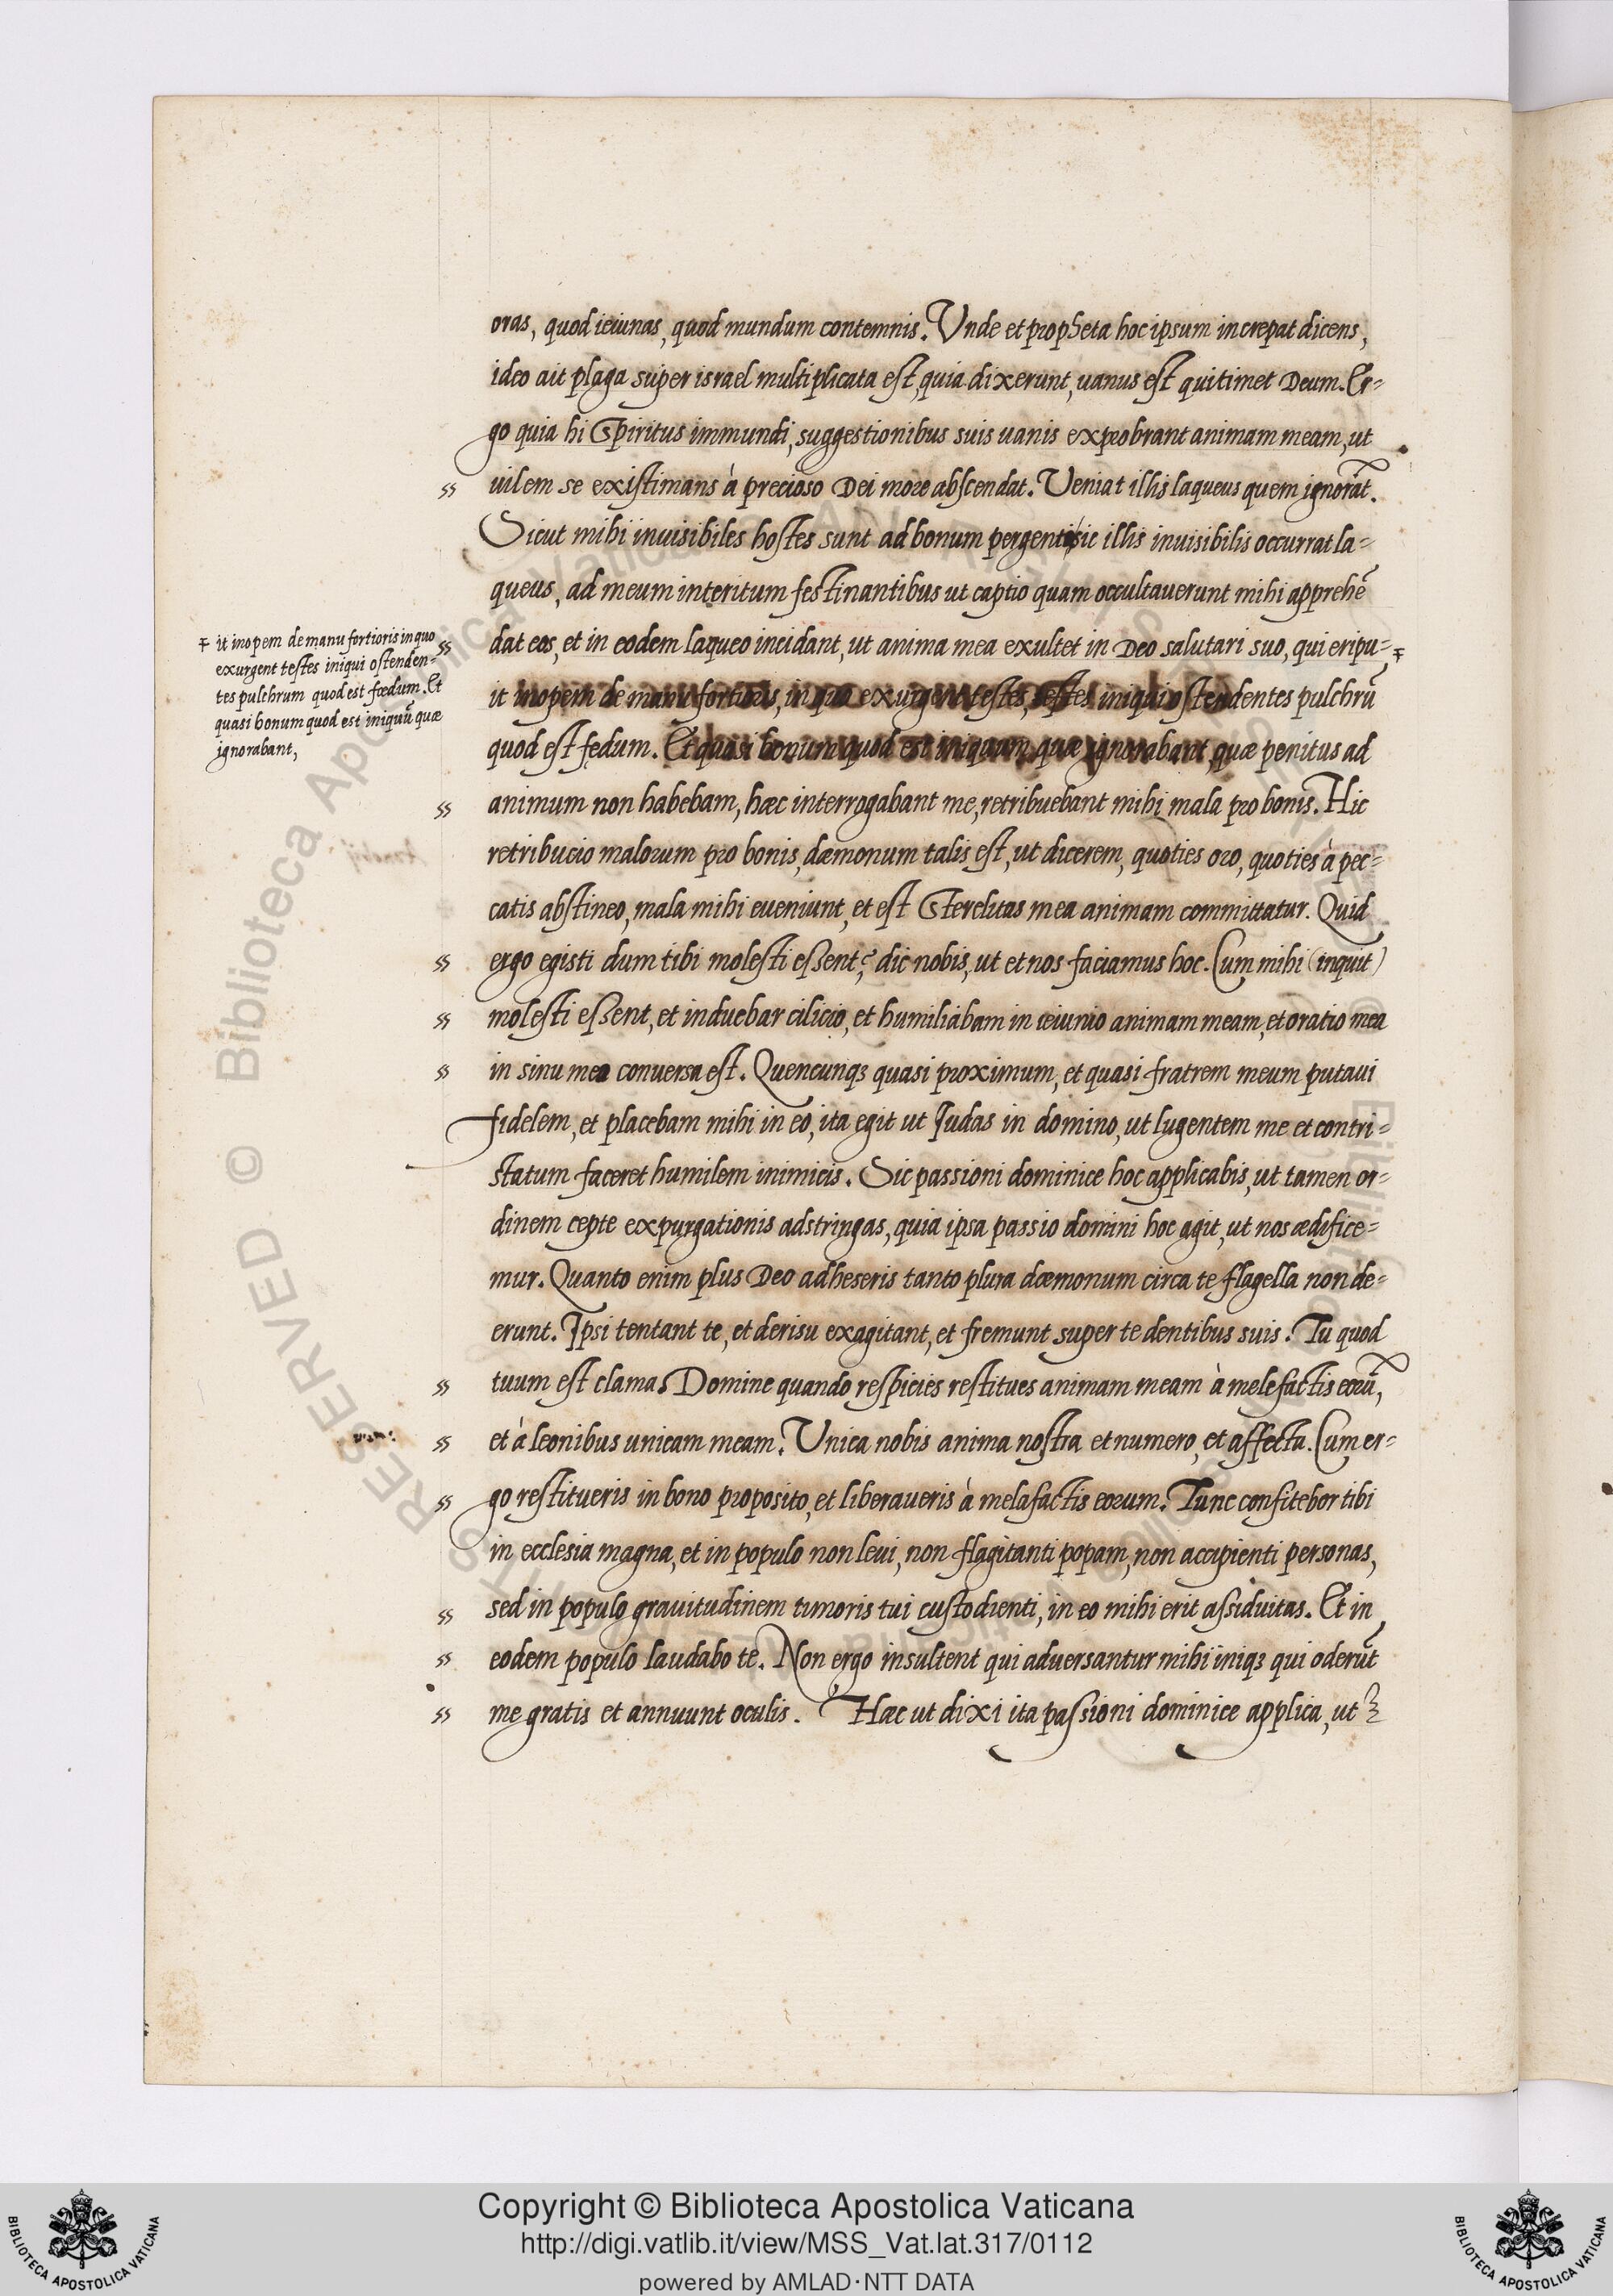 oras, quod ieiunas, quod mundum contemnis. Vnde et propheta hoc ipsum increpat dicens,
ideo ait plaga super israel multiplicata est, quia dixerunt, uanus est qui timet Deum. Er-
go quia hi Spiritus immundi, suggestionibus suis uanis exprobrant animam meam, ut
uilem se existimans à precioso Dei more abscendat. Veniat illis laqueus quem ignorāt.
Sicut mihi inuisibiles hostes sunt ad bonum pergenti sic illis inuisibilis occurrat la-
queus, ad meum interitum festinantibus ut captio quam occultauerunt mihi apprehē
dat eos, et in eodem laqueo incidant, ut anima mea exultet in Deo salutari suo, qui eripu-
it inopem de manu fortioris, in quo exurgent testes, testes iniqui ostendentes pulchrū
quod est fędum. Et quasi bonum quod est iniquum, quæ ignorabant, quæ penitus ad
animum non habebam, hæc interrogabant me, retribuebant mihi mala pro bonis. Hic
retribucio malorum pro bonis, dæmonum talis est, ut dicerem, quoties oro, quoties à pec-
catis abstineo, mala mihi eueniunt, et est Sterelitas mea animam committatur. Quid
ergo egisti dum tibi molesti essent? dic nobis, ut et nos faciamus hoc. Cum mihi (inquit)
molesti essent, et induebar cilicio, et humiliabam in ieiunio animam meam, et oratio mea
in sinu meo conuersa est. Quencunqȝ quasi proximum, et quasi fratrem meum putaui
fidelem, et placebam mihi in eo, ita egit ut Judas in domino, ut lugentem me et contri-
statum faceret humilem inimicis. Sic passioni dominice hoc applicabis, ut tamen or-
dinem cepte expurgationis adstringas, quia ipsa passio domini hoc agit, ut nos ædifice-
mur. Quanto enim plus Deo adheseris tanto plura dæmonum circa te flagella non de-
erunt. Ipsi tentant te, et derisu exagitant, et fremunt super te dentibus suis. Tu quod
tuum est clama. Domine quando respicies restitues animam meam à melefactis eorū,
et à leonibus unicam meam. Vnica nobis anima nostra et numero, et affecta. Cum er-
go restitueris in bono proposito, et liberaueris à melafactis eorum. Tunc confitebor tibi
in ecclesia magna, et in populo non leui, non flagitanti popam, non accipienti personas,
sed in populo grauitudinem timoris tui custodienti, in eo mihi erit assiduitas. Et in
eodem populo laudabo te. Non ergo insultent qui aduersantur mihi iniqȝ qui oderūt
me gratis et annuunt oculis. Hæc ut dixi ita passioni dominice applica, ut
it inopem de manu fortioris in quo
exurgent testes iniqui ostenden-
tes pulchrum quod est fœdum. Et
quasi bonum quod est iniquū quæ
ignorabant,
Copyright © Biblioteca Apostolica Vaticana
http://digi.vatlib.it/view/MSS_Vat.lat.317/0112
powered by AMLAD·NTT DATA
BIBLIOTECA APOSTOLICA VATICANA
BIBLIOTECA APOSTOLICA VATICANA